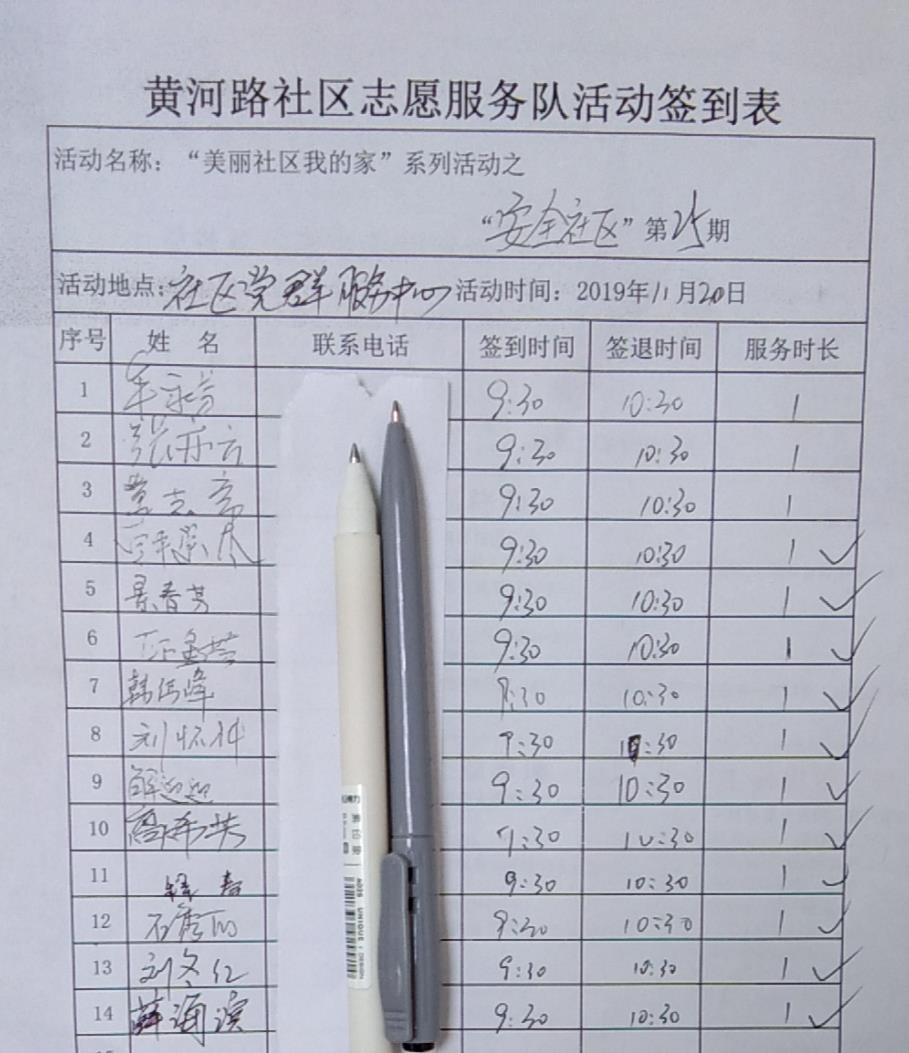 黄河路社区志愿服务队活动签到表
活动名称：“美丽社区我的家”系列活动之
“安全社区”第25期
活动地点：社区党群服务中心 活动时间：2019年11月20日
序号 姓 名 联系电话 签到时间 签退时间 服务时长
1 9:30 10:30 1
2 9:30 10:30 1
3 9:30 10:30 1
4 9:30 10:30 1
5 景春芳 9:30 10:30 1
6 9:30 10:30 1
7 9:30 10:30 1
8 刘怀仲 9:30 10:30 1
9 解迎迎 9:30 10:30 1
10 9:30 10:30 1
11 9:30 10:30 1
12 9:30 10:30 1
13 刘冬红 9:30 10:30 1
14 薛海滨 9:30 10:30 1